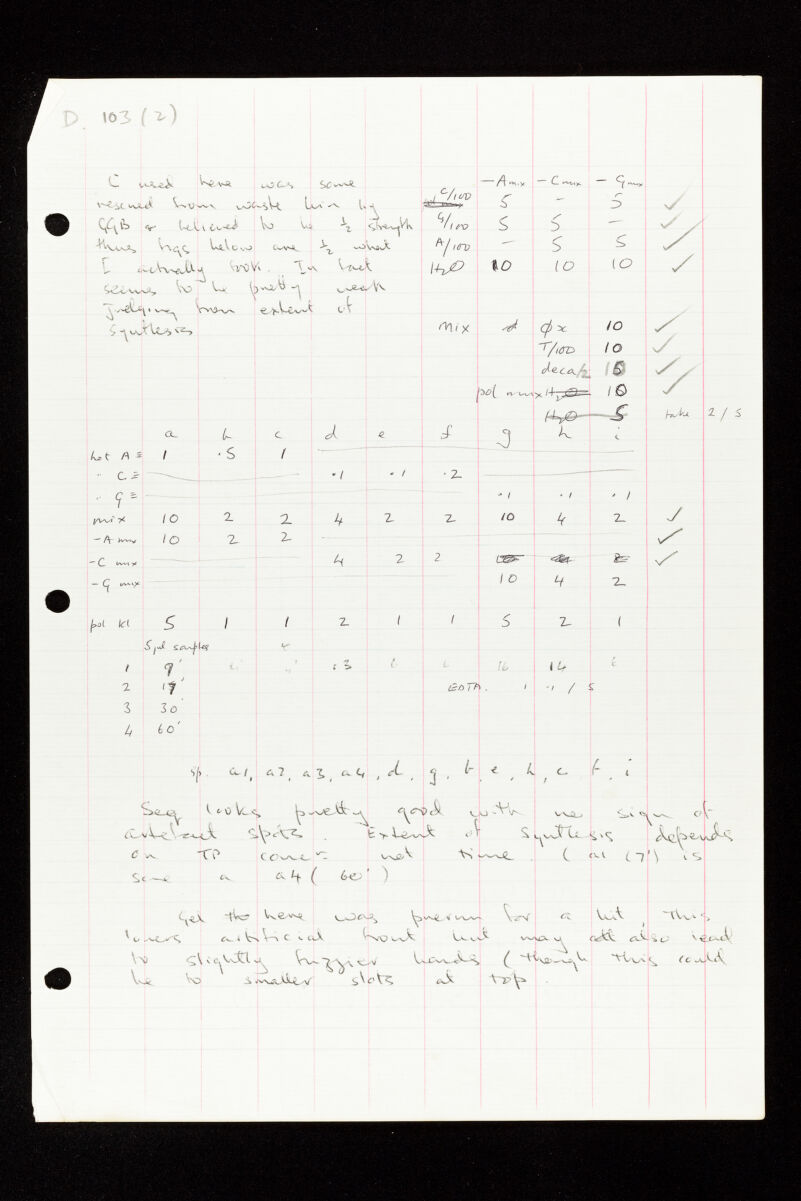 D. 103 (2)
C used here was some
rescued from waste bin by
GGB & believed to be ½ strength
thus figs below are ½ what
I actually took. In fact
seems to be pretty weak
judging from extent of
synthesis
-A mix -C mix -G mix
C/100 5 - 5 ✓
G/100 5 5 - ✓
A/100 - 5 5 ✓
H2O 10 10 10 ✓
mix φx 10 ✓
T/100 10 ✓
deca/2 ✓
pol mix H2O ✓
H2O 5 take 2/5
a b c d e f g h i
hot A ≡ 1 .5 1
" C ≡ .1 .1 .2
" G ≡ .1 .1 .1
mix 10 2 2 4 2 2 10 4 2 ✓
-A mix 10 2 2 ✓
-C mix 4 2 2 ✓
-G mix 10 4 2
pol kl 5 1 1 2 1 1 5 2 1
5 μl samples
1 14
2 EDTA. .1/5
3 30'
4 60'
sp. a1, a2, a3, a4, d, g, b, e, h, c, f, i
Seq looks pretty good with no sign of
artefact spots. Extent of synthesis depends
on TP concn not time. (a1 (7') is
same a a4 (60')
Gel here was prerun for a bit, this
lowers artificial front but may also lead
to slightly fuzzier bands (though this could
be to smaller slots at top.